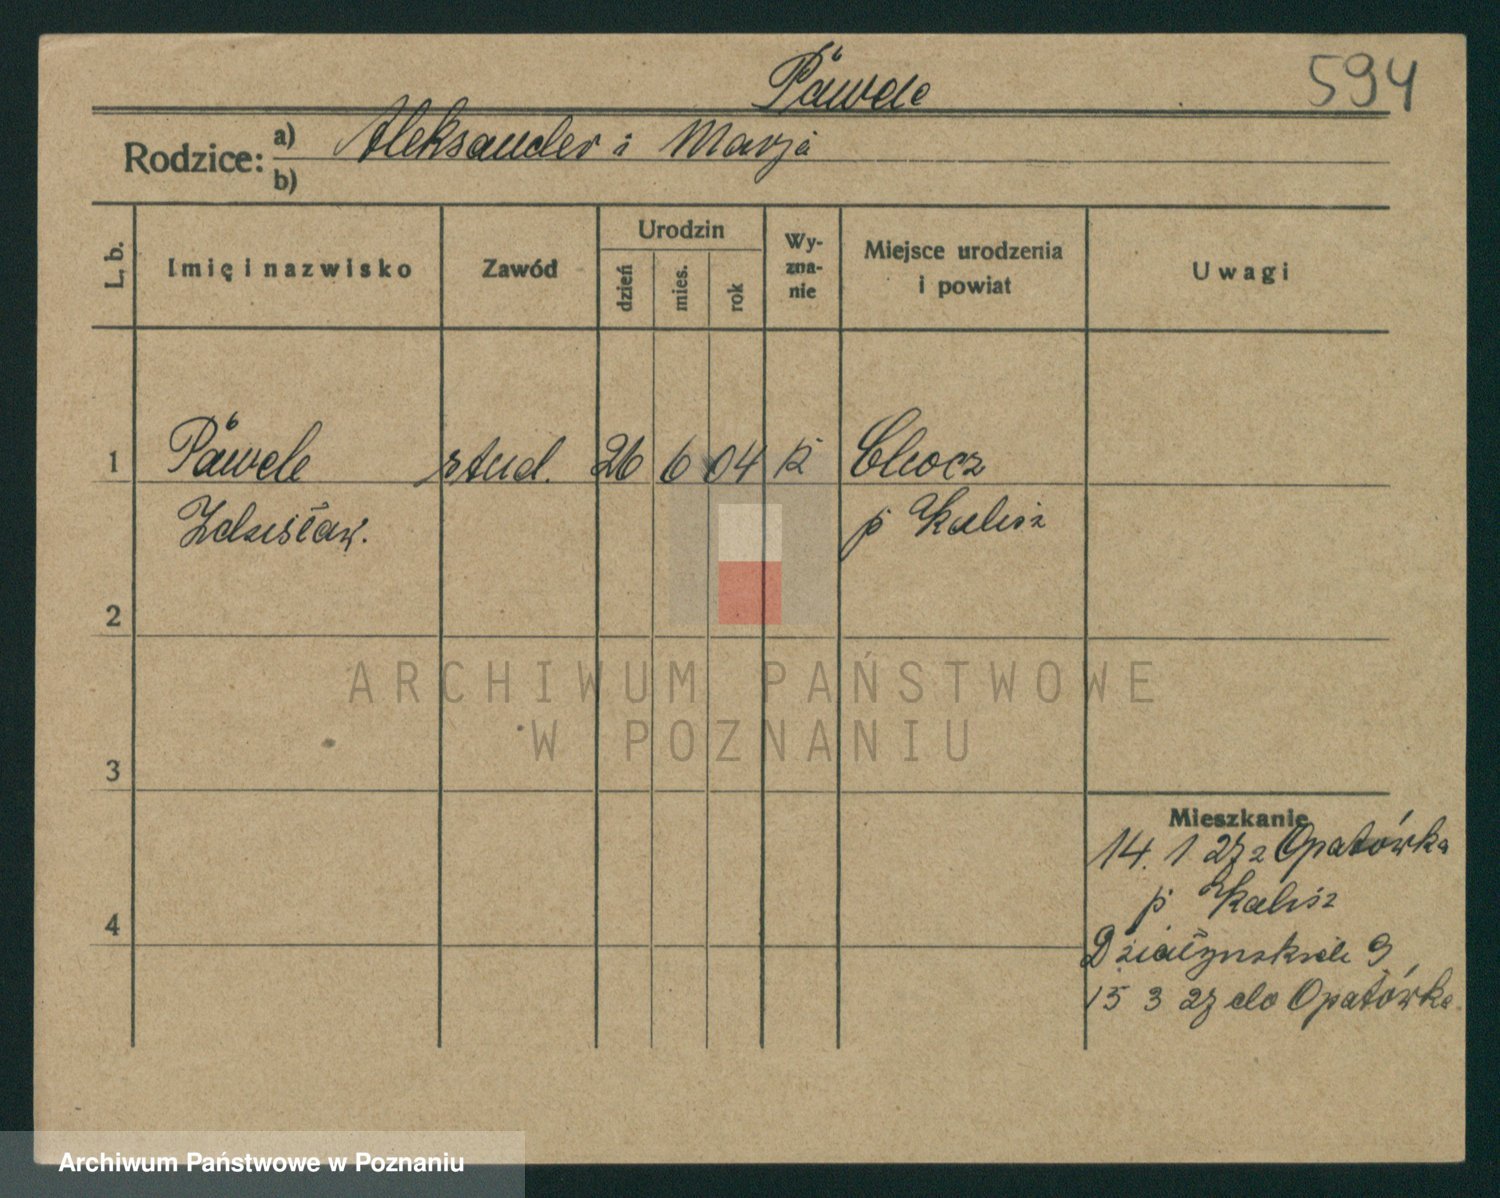 Päwele
594
Rodzice: a) Aleksander i Marja
b)
L. b.
Imię i nazwisko
Zawód
Urodzin
dzień
mies.
rok
Wy-
zna-
nie
Miejsce urodzenia
i powiat
Uwagi
1 Päwele stud. 26 6 04 k Chocz
Zdzisław. p Kalisz
2
ARCHIWUM PAŃSTWOWE
W POZNANIU
3
Mieszkanie
14. 1 27 z Opatówka
p Kalisz
4
Działyńskich 9
15 3 27 do Opatówka
Archiwum Państwowe w Poznaniu